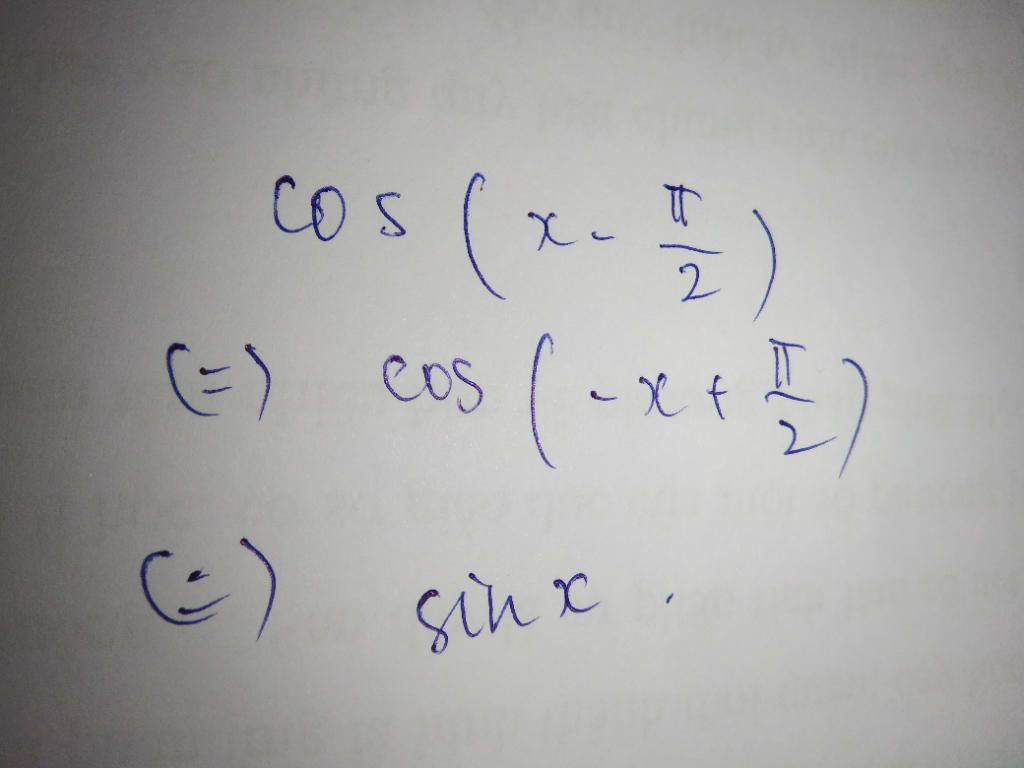 cos (x - π/2)
(=) cos (-x + π/2)
(=) sin x .